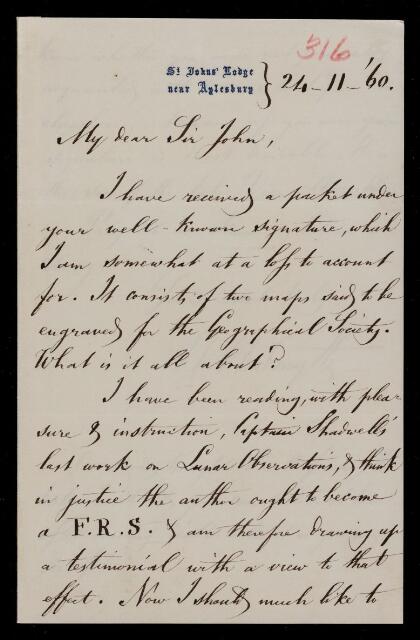 316
St Johns' Lodge
near Aylesbury } 24-11-'60.
My dear Sir John,
I have received a packet under
your well-known signature, which
I am somewhat at a loss to account
for. It consists of two maps said to be
engraved for the Geographical Society.
What is it all about?
I have been reading, with plea-
sure & instruction, Captain Shadwell's
last work on Lunar Observations, & think
in justice the author ought to become
a F.R.S. & am therefore drawing up
a testimonial with a view to that
effect. Now I should much like to